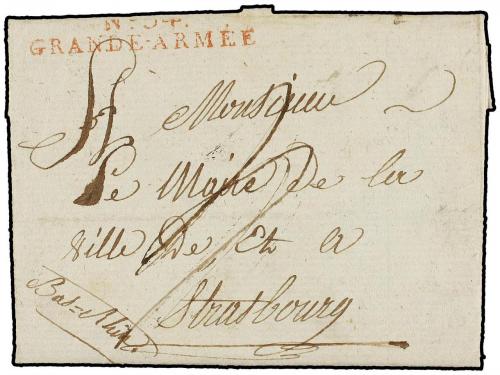 Nº 54.
GRANDE-ARMÉE
Monsieur
Le Maire De la
ville De Et a
Strasbourg
Bas=Rhin